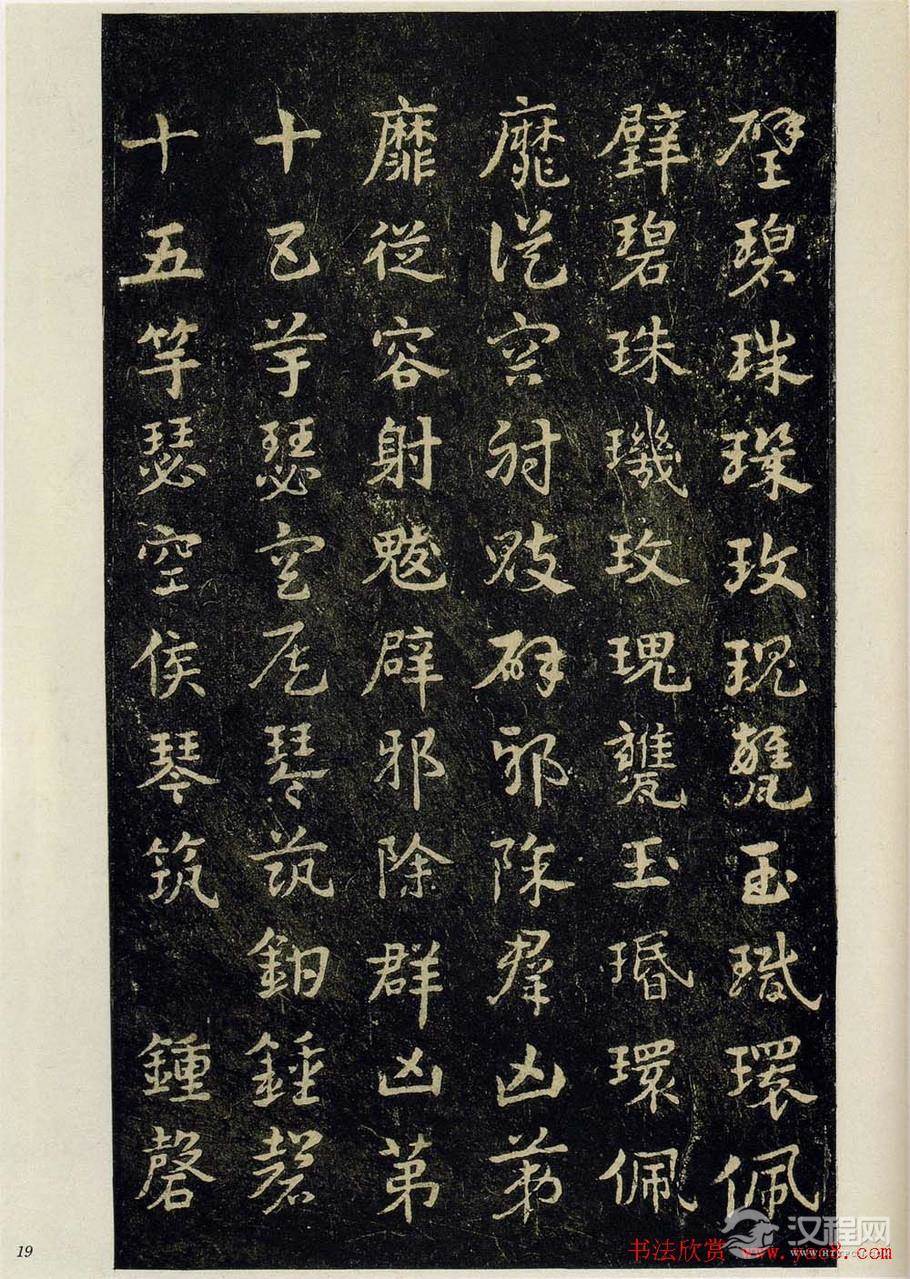 璧碧珠璣玫瑰甕玉玦環佩
璧碧珠璣玫瑰甕玉瑉環佩
靡從容射魃辟邪除羣凶第
靡從容射魃辟邪除群凶第
十五竽瑟空侯琴筑鍾磬
十五竽瑟空侯琴筑鍾磬
19
汉程网
书法欣赏